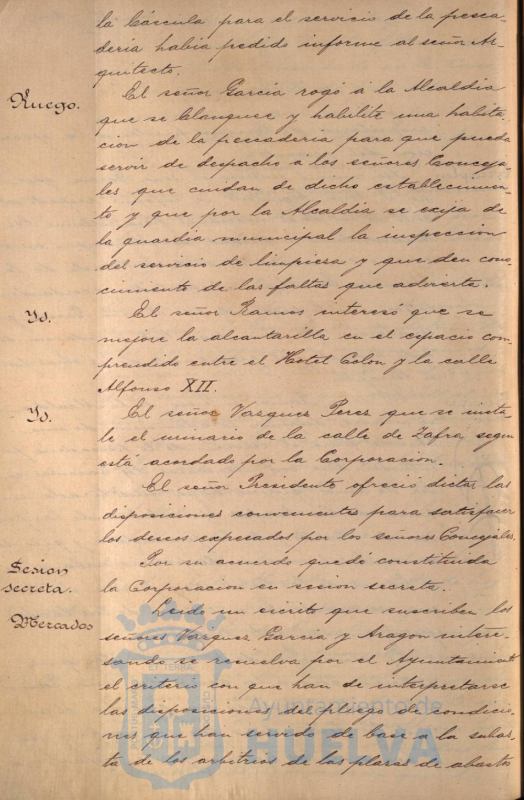 la báscula para el servicio de la pesca-
deria habia pedido informe al señor Ar-
quitecto.
Ruego.
El señor Garcia rogó á la Alcaldia
que se blanquee y habilite una habita-
cion de la pescaderia para que pueda
servir de despacho á los señores Conceja-
les que cuidan de dicho establecimien-
to y que por la Alcaldia se exija de
la guardia municipal la inspeccion
del servicio de limpiesa y que den cono-
cimiento de las faltas que advierta.
Yd.
El señor Ramos interesó que se
mejore la alcantarilla en el espacio com-
prendido entre el Hotel Colon y la calle
Alfonso XII.
Yd.
El señor Vazquez Perez que se insta-
le el urinario de la calle de Zafra segun
está acordado por la Corporacion.
El señor Presidente ofreció dictar las
disposiciones convenientes para satisfacer
los deseos expesados por los señores Concejales.
Sesion
secreta.
Por su acuerdo quedó constituida
la Corporacion en sesion secreta.
Mercados
Leido un escrito que suscriben los
señores Vazquez Garcia y Aragon intere-
sando se resuelva por el Ayuntamiento
el criterio con que han de interpretarse
las disposiciones del pliego de condicio-
nes que han servido de base a la subas-
ta de los arbitrios de las plazas de abastos
Ayuntamiento de
HUELVA